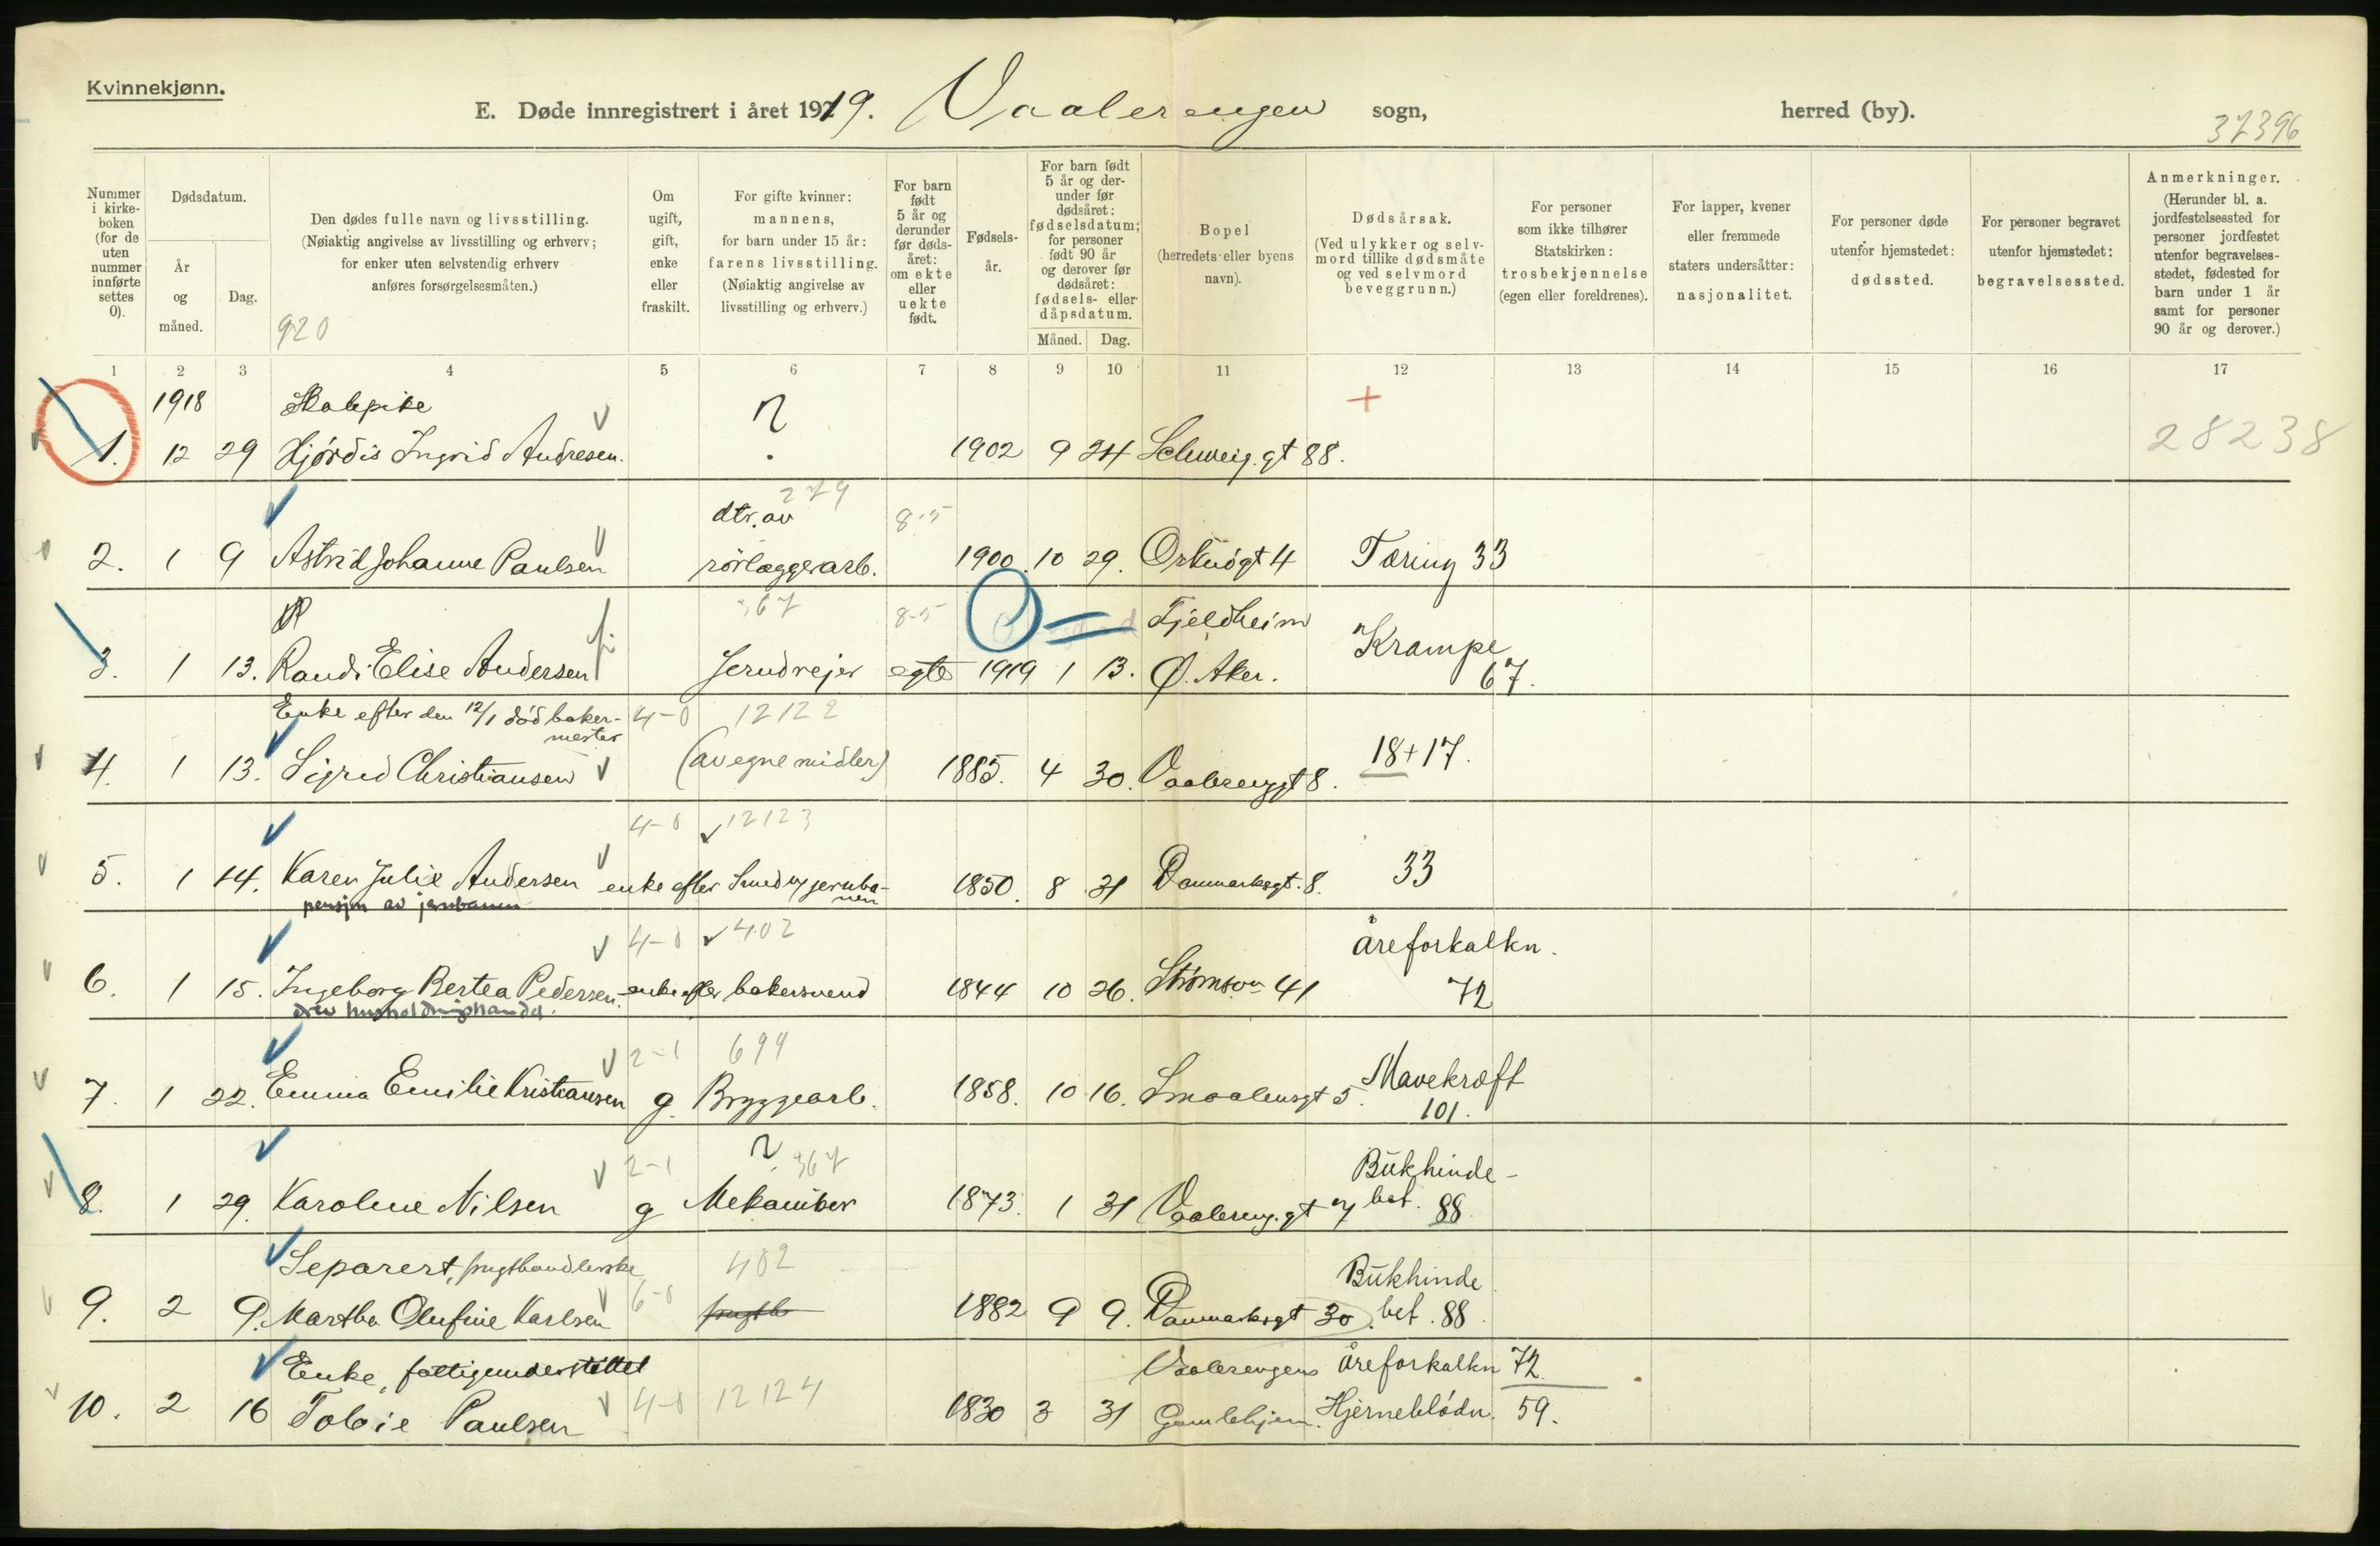 Kvinnekjønn.
E. Døde innregistrert i året 1919. Vaalerengen sogn, herred (by).
37396
Nummer i kirkeboken (for de uten nummer innførte settes 0).
Dødsdatum.
År og måned.
Dag.
Den dødes fulle navn og livsstilling.
(Nøiaktig angivelse av livsstilling og erhverv;
for enker uten selvstendig erhverv
anføres forsørgelsesmåten.)
920
Om ugift, gift, enke eller fraskilt.
For gifte kvinner: mannens, for barn under 15 år: farens livsstilling. (Nøiaktig angivelse av livsstilling og erhverv.)
For barn født 5 år og derunder før dødsåret: om ekte eller uekte født.
Fødselsår.
For barn født 5 år og derunder før dødsåret: fødselsdatum; for personer født 90 år og derover før dødsåret: fødsels- eller dåpsdatum.
Måned. Dag.
Bopel (herredets eller byens navn).
Dødsårsak. (Ved ulykker og selvmord tillike dødsmåte og ved selvmord beveggrunn.)
For personer som ikke tilhører Statskirken: trosbekjennelse (egen eller foreldrenes).
For lapper, kvener eller fremmede staters undersåtter: nasjonalitet.
For personer døde utenfor hjemstedet: dødssted.
For personer begravet utenfor hjemstedet: begravelsessted.
Anmerkninger. (Herunder bl. a. jordfestelsessted for personer jordfestet utenfor begravelsesstedet, fødested for barn under 1 år samt for personer 90 år og derover.)
1 2 3 4 5 6 7 8 9 10 11 12 13 14 15 16 17
1918 +
1. 12 29 Hjørdis Ingrid Andresen. 1902 9 24 Schweig. gt 88. 28238
dtr. av 279 8-5
2. 1 9 Astrid Johanne Paulsen rörlæggerarb. 1900. 10 29. Orknögt 4 Tæring 33
367 8-5 Fjeldheim Krampe
3. 1 13. Randi Elise Andersen egte 1919 1 13. Ø. Aker. 67.
Enke efter den 12/1 död bakermester 4-0 12122
4. 1 13. Sigrid Christiansen (av egne midler) 1885. 4 30. Vaalerenggt 8. 18+17.
4-0 12123
5. 1 14. Karen Julie Andersen enke efter Smed v/ jernbanen 1850. 8 21 Danmarksgt. 8. 33
pensjon av jernbanen
4-0 402 Åreforkalkn.
6. 1 15. Ingeborg Bertea Pedersen enke efter bakersvend 1844 10 26. Strömsvn 41 72
drev husholdningshandel.
2-1 694 Mavekræft
7. 1 22. Emma Emilie Kristiansen g. Bryggearb. 1858. 10 16. Smaalensgt 5. 101.
2-1 367 Bukhinde-
8. 1 29. Karoline Nilsen g Mekaniker 1873. 1 31 Vaalereng. gt bet. 88.
Separert, frugthandlerske 402 Bukhinde
9. 2 9. Martha Olufine Karlsen 6-0 1882 9 9. Danmarksgt 30. bet. 88.
Enke, fattigunderstöttet Vaalerengens Åreforkalkn 72.
10. 2 16 Tobie Paulsen 4-0 12124 1830 3 31 Gamlehjem. Hjerneblödn. 59.